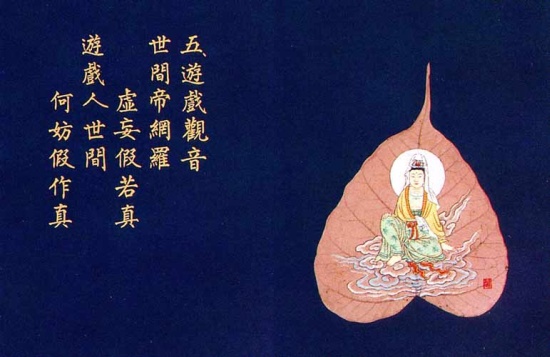 五、遊戲觀音
世間帝網羅
虛妄假若真
遊戲人世間
何妨假作真